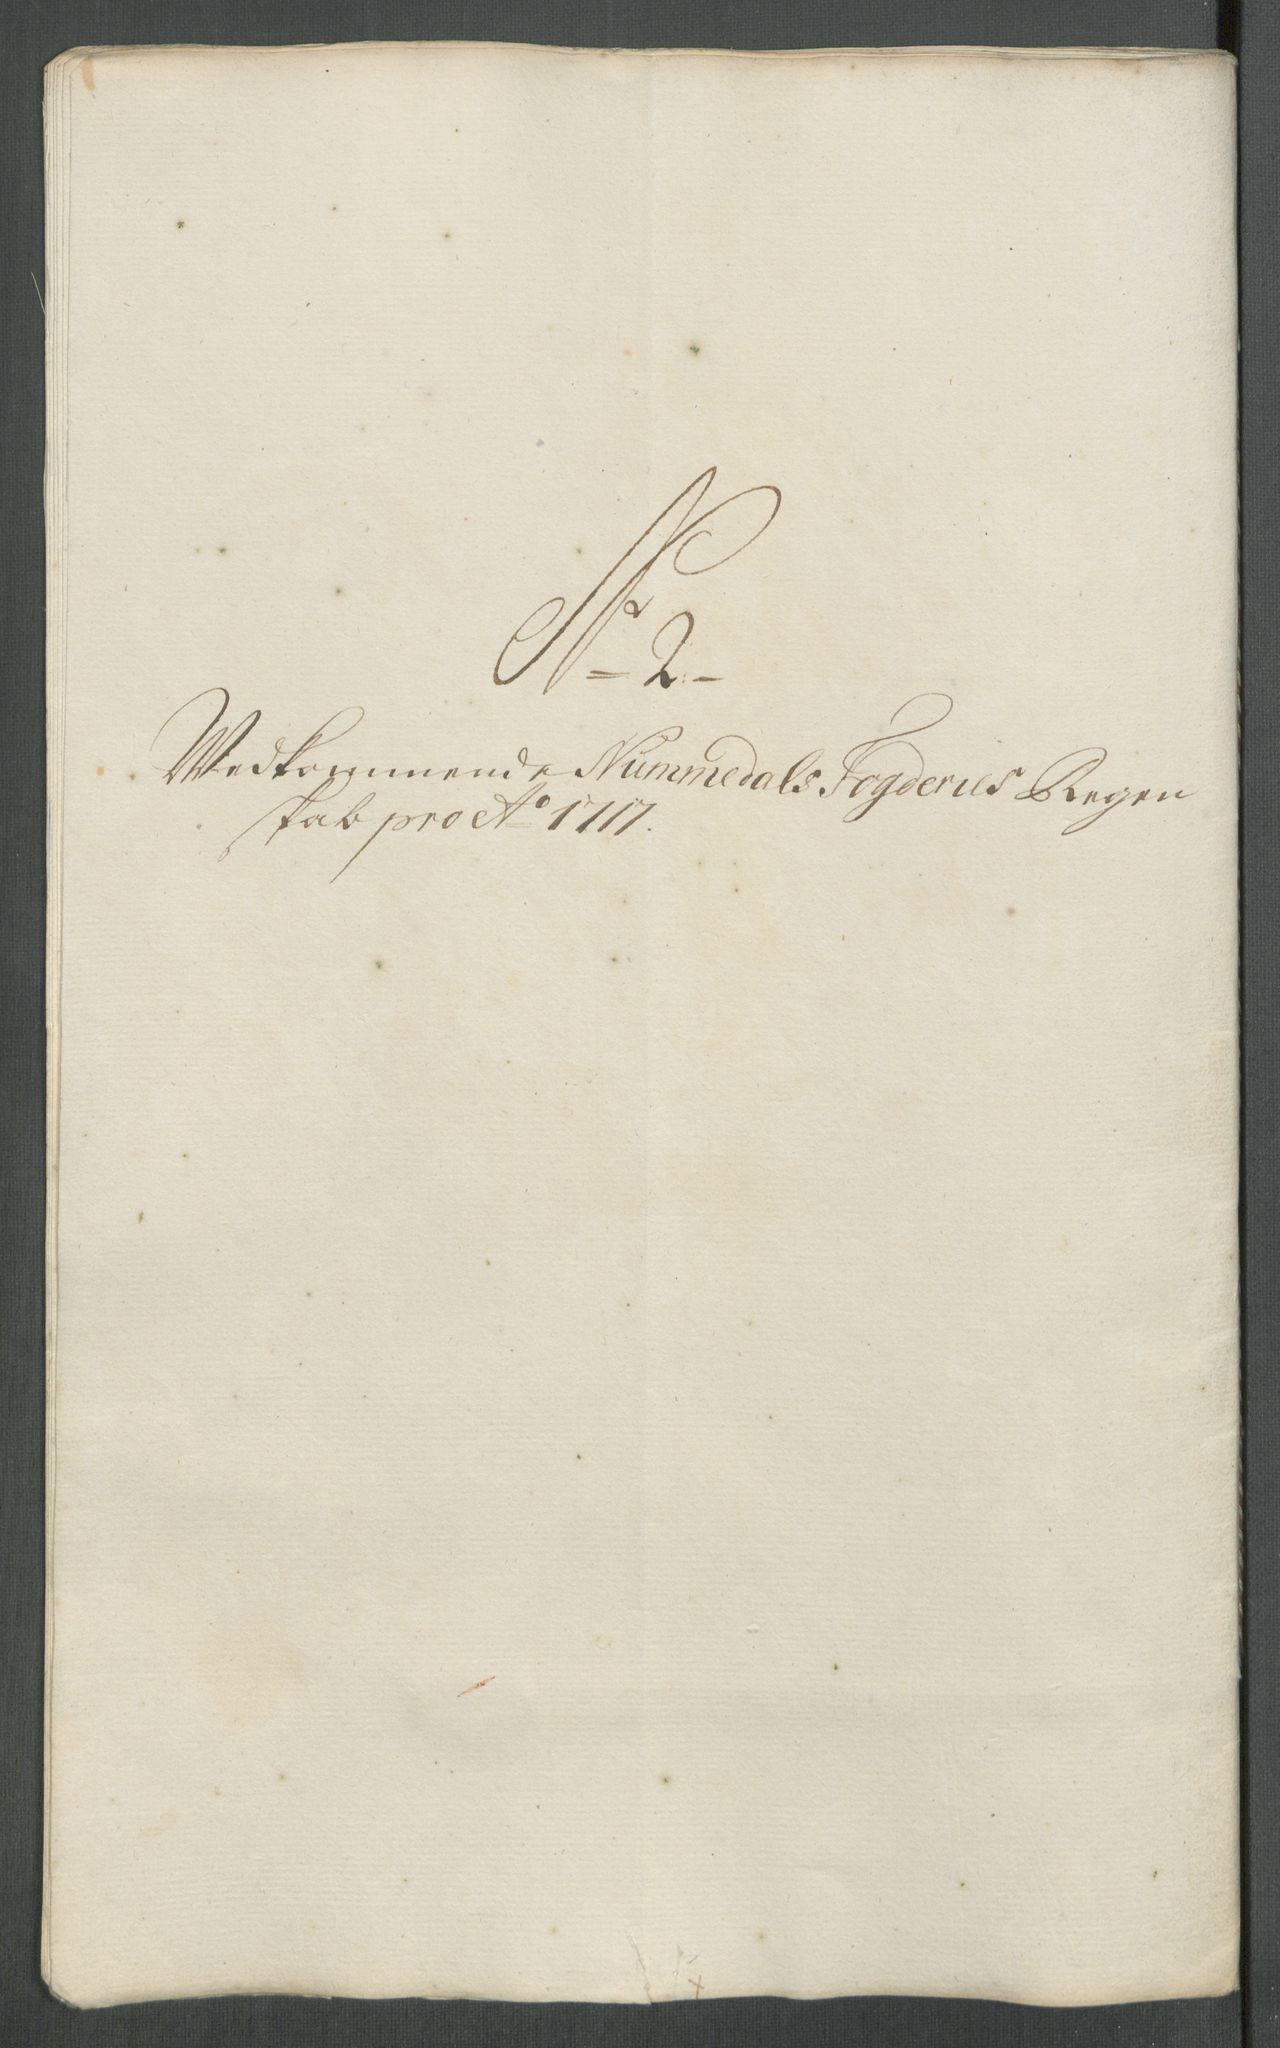 No = 2 -
Wedkommende Nummedals Fogderies Regen
skab pro Ao 1717.